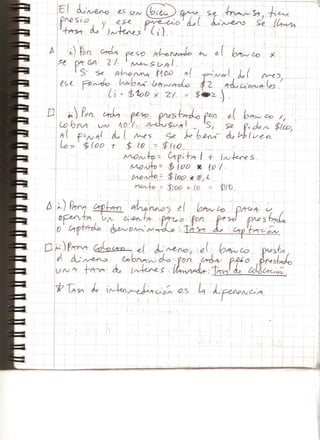 El dinero es un (bien) que se transa, tiene
precio y ese precio del dinero se llama
"tasa de Interes" (i).
i) Por cada peso ahorrado en el banco x
se paga 2% mensual.
Si se ahorra $100 al final del mes,
ese fondo habrá ganado $2 adicionales.
(i = $100 x 2% = $2)
ii) Por cada peso prestado por el banco y,
cobra un 10% mensual. Si se piden $100,
al final del mes se deberá devolver
Los = $100 + $10 = $110.
Monto = Capital + Interes.
Monto = $100 x 10%
Monto = $100 x 0,1
Monto = $100 + 10 = $110.
i) Para captar ahorros el banco paga y
oferta un cierto por peso prestado
o captado denominado: Tasa de captación
ii) Para Colocar el dinero, el banco presta
el dinero cobrando por cada peso prestado
una tasa de interes llamada: Tasa de colocación
* Tasa de intermediación es la diferencia